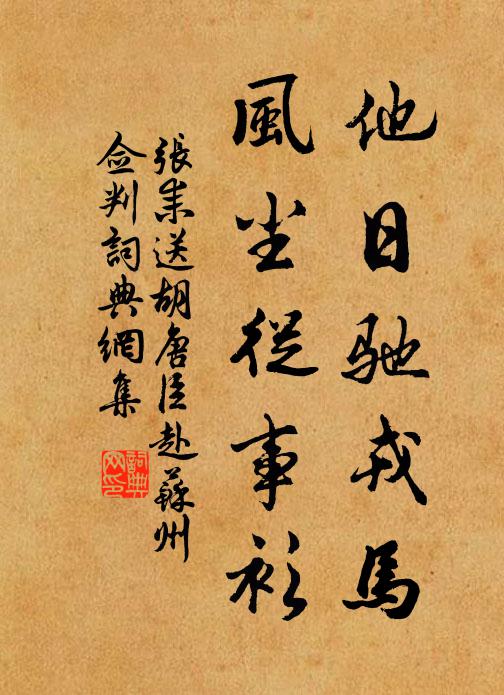 他日馳戎馬
風塵從事衫
張耒送胡唐臣赴蘇州
僉判詞典網集
詞典
网印